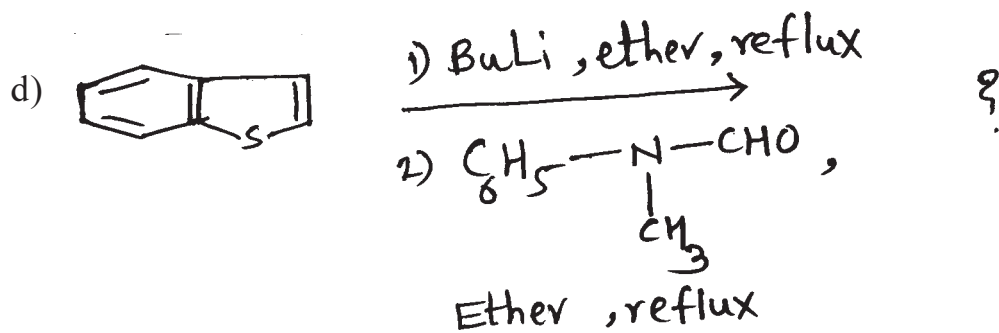 1) BuLi, ether, reflux
d)
S
?
2) C6H5—N—CHO,
CH3
Ether, reflux